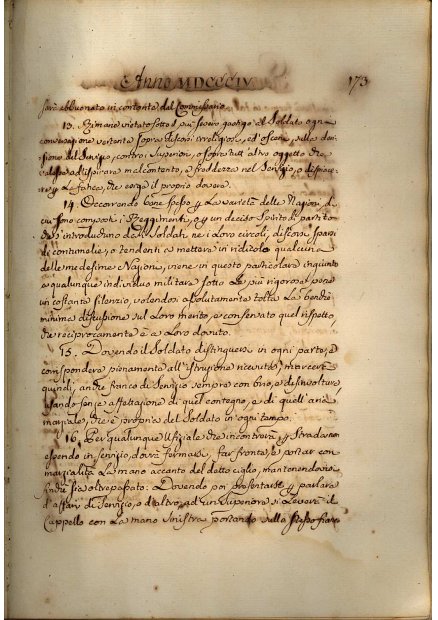 Anno MDCCCIV. 173
sarà abbuonato in contante dal Commissario.
13. Rimane vietato sotto il più severo gastigo al Soldato ogni
conversazione vertente sopra discorsi irreligiosi, ed osceni, sulla
del Servizio, contro i Superiori, o sopra tutt'altro oggetto che
ad ispirare malcontento, o freddezza nel Servizio, o dispiace-
re la fatica, che esige il proprio dovere.
14. Occorrendo bene spesso la varietà delle Nazioni, di
cui sono composti i Reggimenti, o un deciso spirito di partito
introducono dai Soldati ne i Loro circoli, discorsi sparsi
di contumelie, o tendenti a mettere in ridicolo qualcuna
delle medesime Nazioni, viene in questo particolare ingiunto
a qualunque individuo militare sotto le più rigorose pene
un costante silenzio, volendosi assolutamente tolta La benchè
minima discussione sul Loro merito, e conservato quel rispetto,
che reciprocamente è a Loro dovuto.
15. Dovendo il Soldato distinguersi in ogni parte, e
corrispondere pienamente all'istruzione ricevuta, marcerà
quindi, anche franco di Servizio sempre con brio, e disinvoltura,
usando senza affettazione di quel contegno, e di quell'aria
marziale, che è propria del Soldato in ogni tempo.
16. Per qualunque Uffiziale che incontrerà Strada non
essendo in servizio, dovrà fermarsi, far fronte, e portar con
marzialità La mano accanto del detto ciglio, mantenendovisi
finchè sia oltrepassato: Dovendo poi presentarsi parlare
d'affari di Servizio, o d'altro ad un Superiore si Leverà il
Cappello con La mano sinistra portando sullo stesso fianco